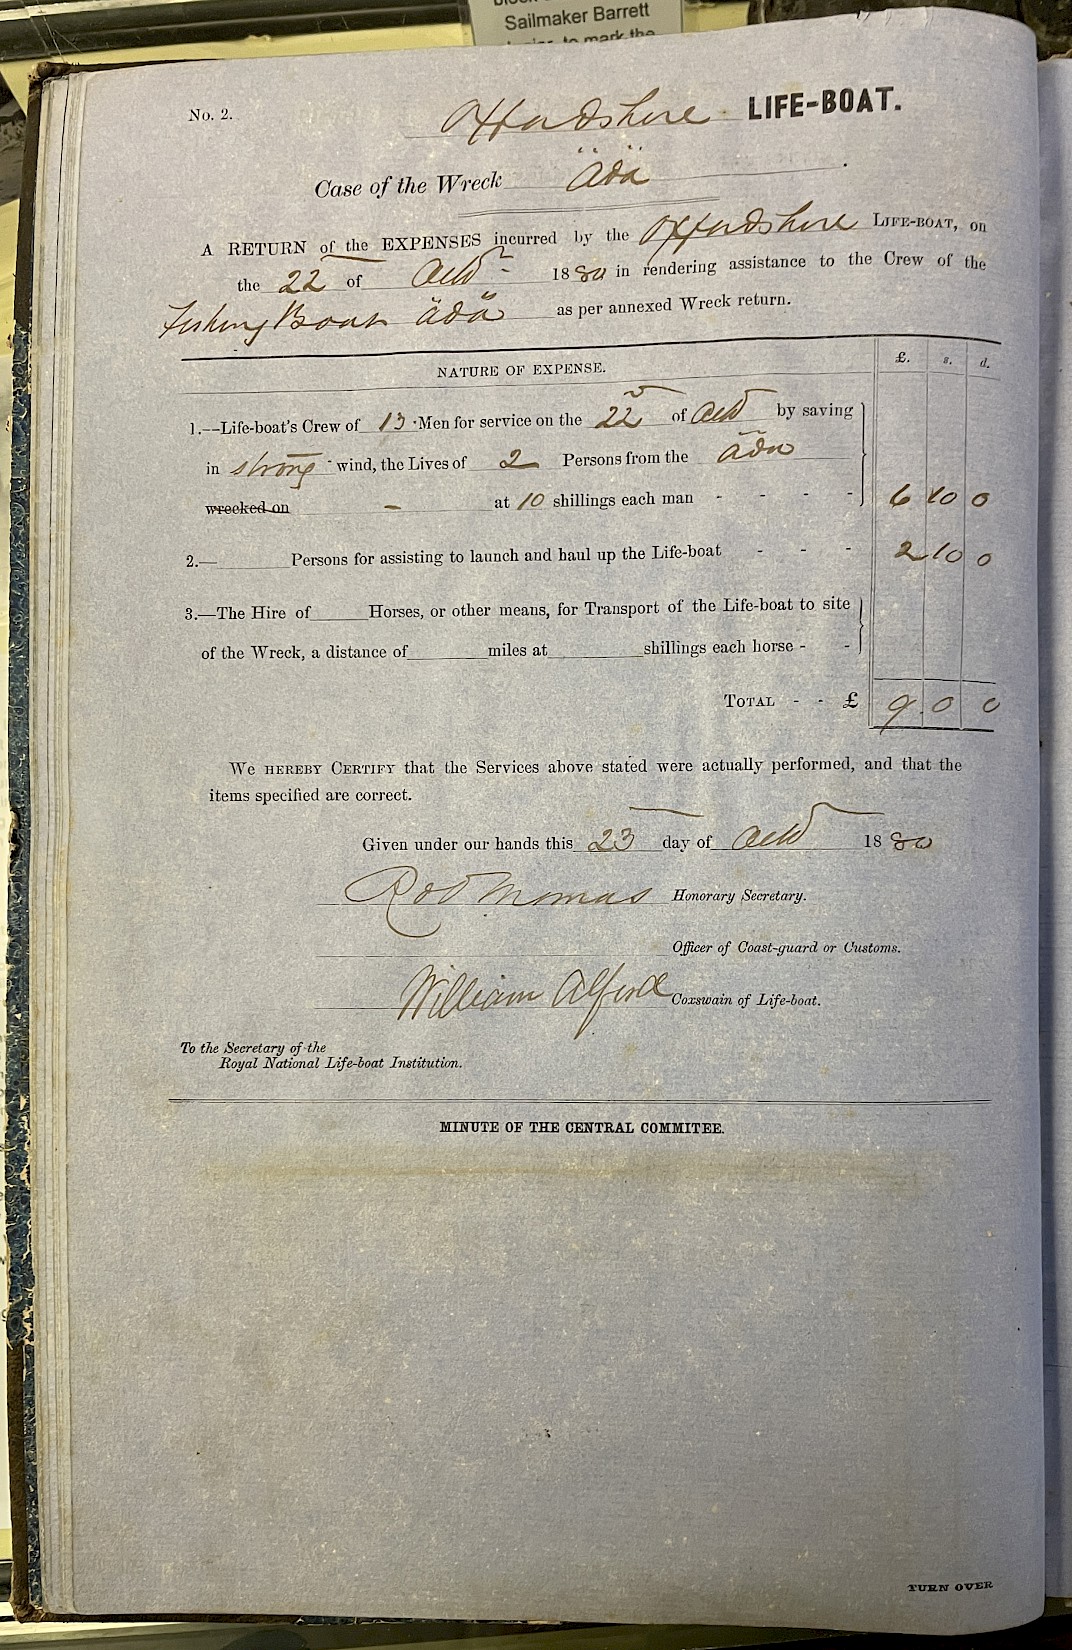 Sailmaker Barrett
to mark the
No. 2.
Oxfordshire LIFE-BOAT.
Case of the Wreck Äda
A RETURN of the EXPENSES incurred by the Oxfordshire LIFE-BOAT, on
the 22 of 1880 in rendering assistance to the Crew of the
Fishing Boat äda as per annexed Wreck return.
NATURE OF EXPENSE. £. s. d.
1.—Life-boat's Crew of 13 Men for service on the 22 of by saving
in strong wind, the Lives of 2 Persons from the äda
wrecked on - at 10 shillings each man - - - - 6 10 0
2.— Persons for assisting to launch and haul up the Life-boat - - - 2 10 0
3.—The Hire of Horses, or other means, for Transport of the Life-boat to site
of the Wreck, a distance of miles at shillings each horse - -
TOTAL - - £ 9 0 0
WE HEREBY CERTIFY that the Services above stated were actually performed, and that the
items specified are correct.
Given under our hands this 23 day of 1880
Rob Thomas Honorary Secretary.
Officer of Coast-guard or Customs.
William Alford Coxswain of Life-boat.
To the Secretary of the
Royal National Life-boat Institution.
MINUTE OF THE CENTRAL COMMITEE.
TURN OVER